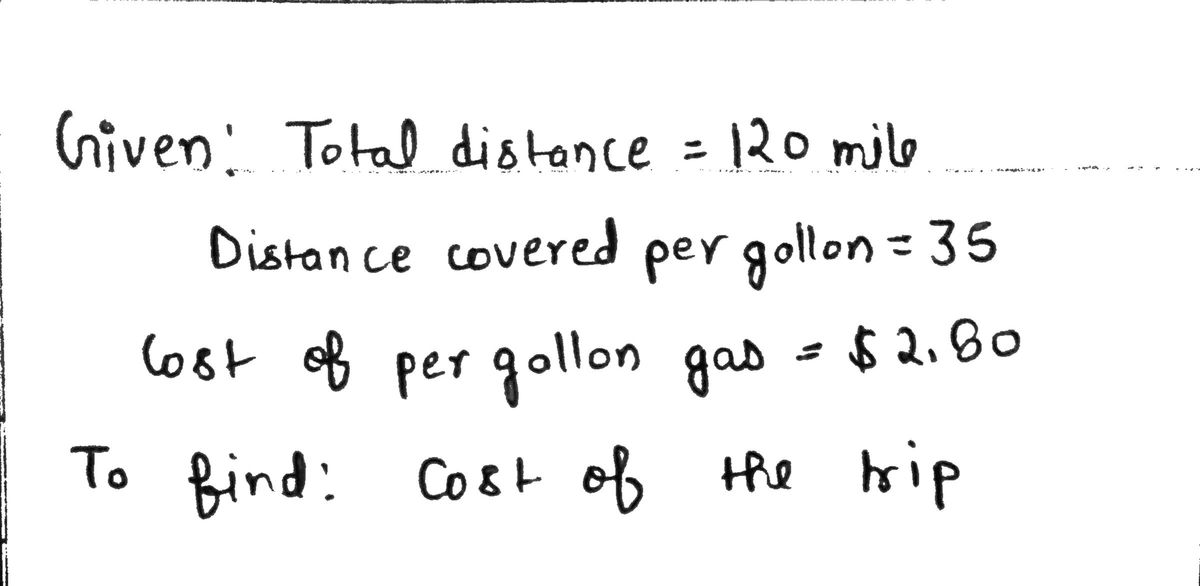 Given: Total distance = 120 mile
Distance covered per gollon = 35
Cost of per gallon gas = $2.80
To find: Cost of the trip